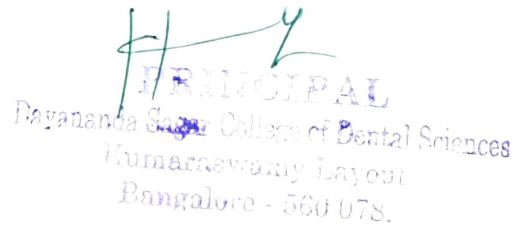 PRINCIPAL
Dayananda Sagar College of Dental Sciences
Kumaraswamy Layout
Bangalore - 560 078.